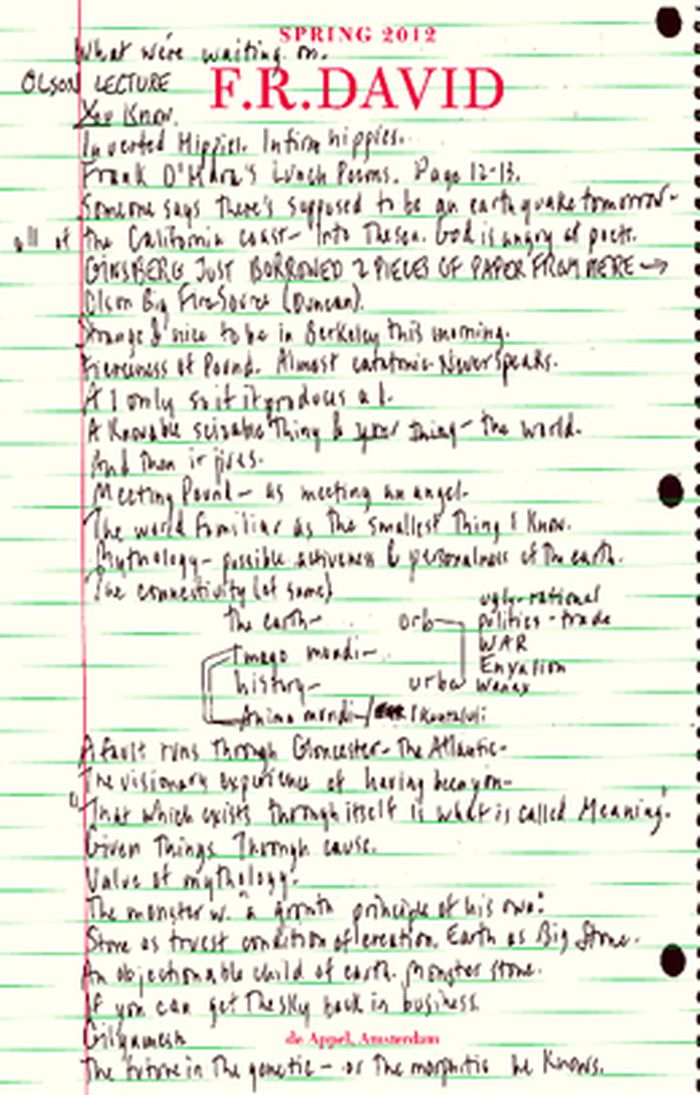 SPRING 2012
What we're waiting on.
OLSON LECTURE
F.R.DAVID
You Know.
Inverted Hippies. Infirm hippies.
Frank O'Hara's Lunch Poems. Page 12-13.
Someone says there's supposed to be an earthquake tomorrow-
all of the California coast- into the sea. God is angry at poets.
GINSBERG JUST BORROWED 2 PIECES OF PAPER FROM MERE →
Olson Big Fire Source (Duncan).
Strange & nice to be in Berkeley this morning.
Fierceness of Pound. Almost catatonic- Never speaks.
A 1 only so if it produces a 1.
A Knowable seizable Thing & your thing- the world.
And then it
Meeting Pound- as meeting an angel.
The world familiar as the smallest Thing I Know.
Mythology- possible activeness & personalness of the earth.
The connectivity (of same)
the earth-
orb
ugly-rational
politics-trade
WAR
Enyalion
wanax
Imago mundi-
history-
urbs
Anima mundi-/
A fault runs through Gloucester- The Atlantic-
The visionary experience of having been
"That which exists through itself is what is called Meaning."
Given Things Through cause.
Value of mythology.
The monster w. a growth principle of his own:
Stone as truest condition of creation. Earth as Big Stone.
An objectionable child of earth. Monster stone.
If you can get the sky back in business.
Gilgamesh
de Appel, Amsterdam
The future in The genetic- or The morphitic he Knows.